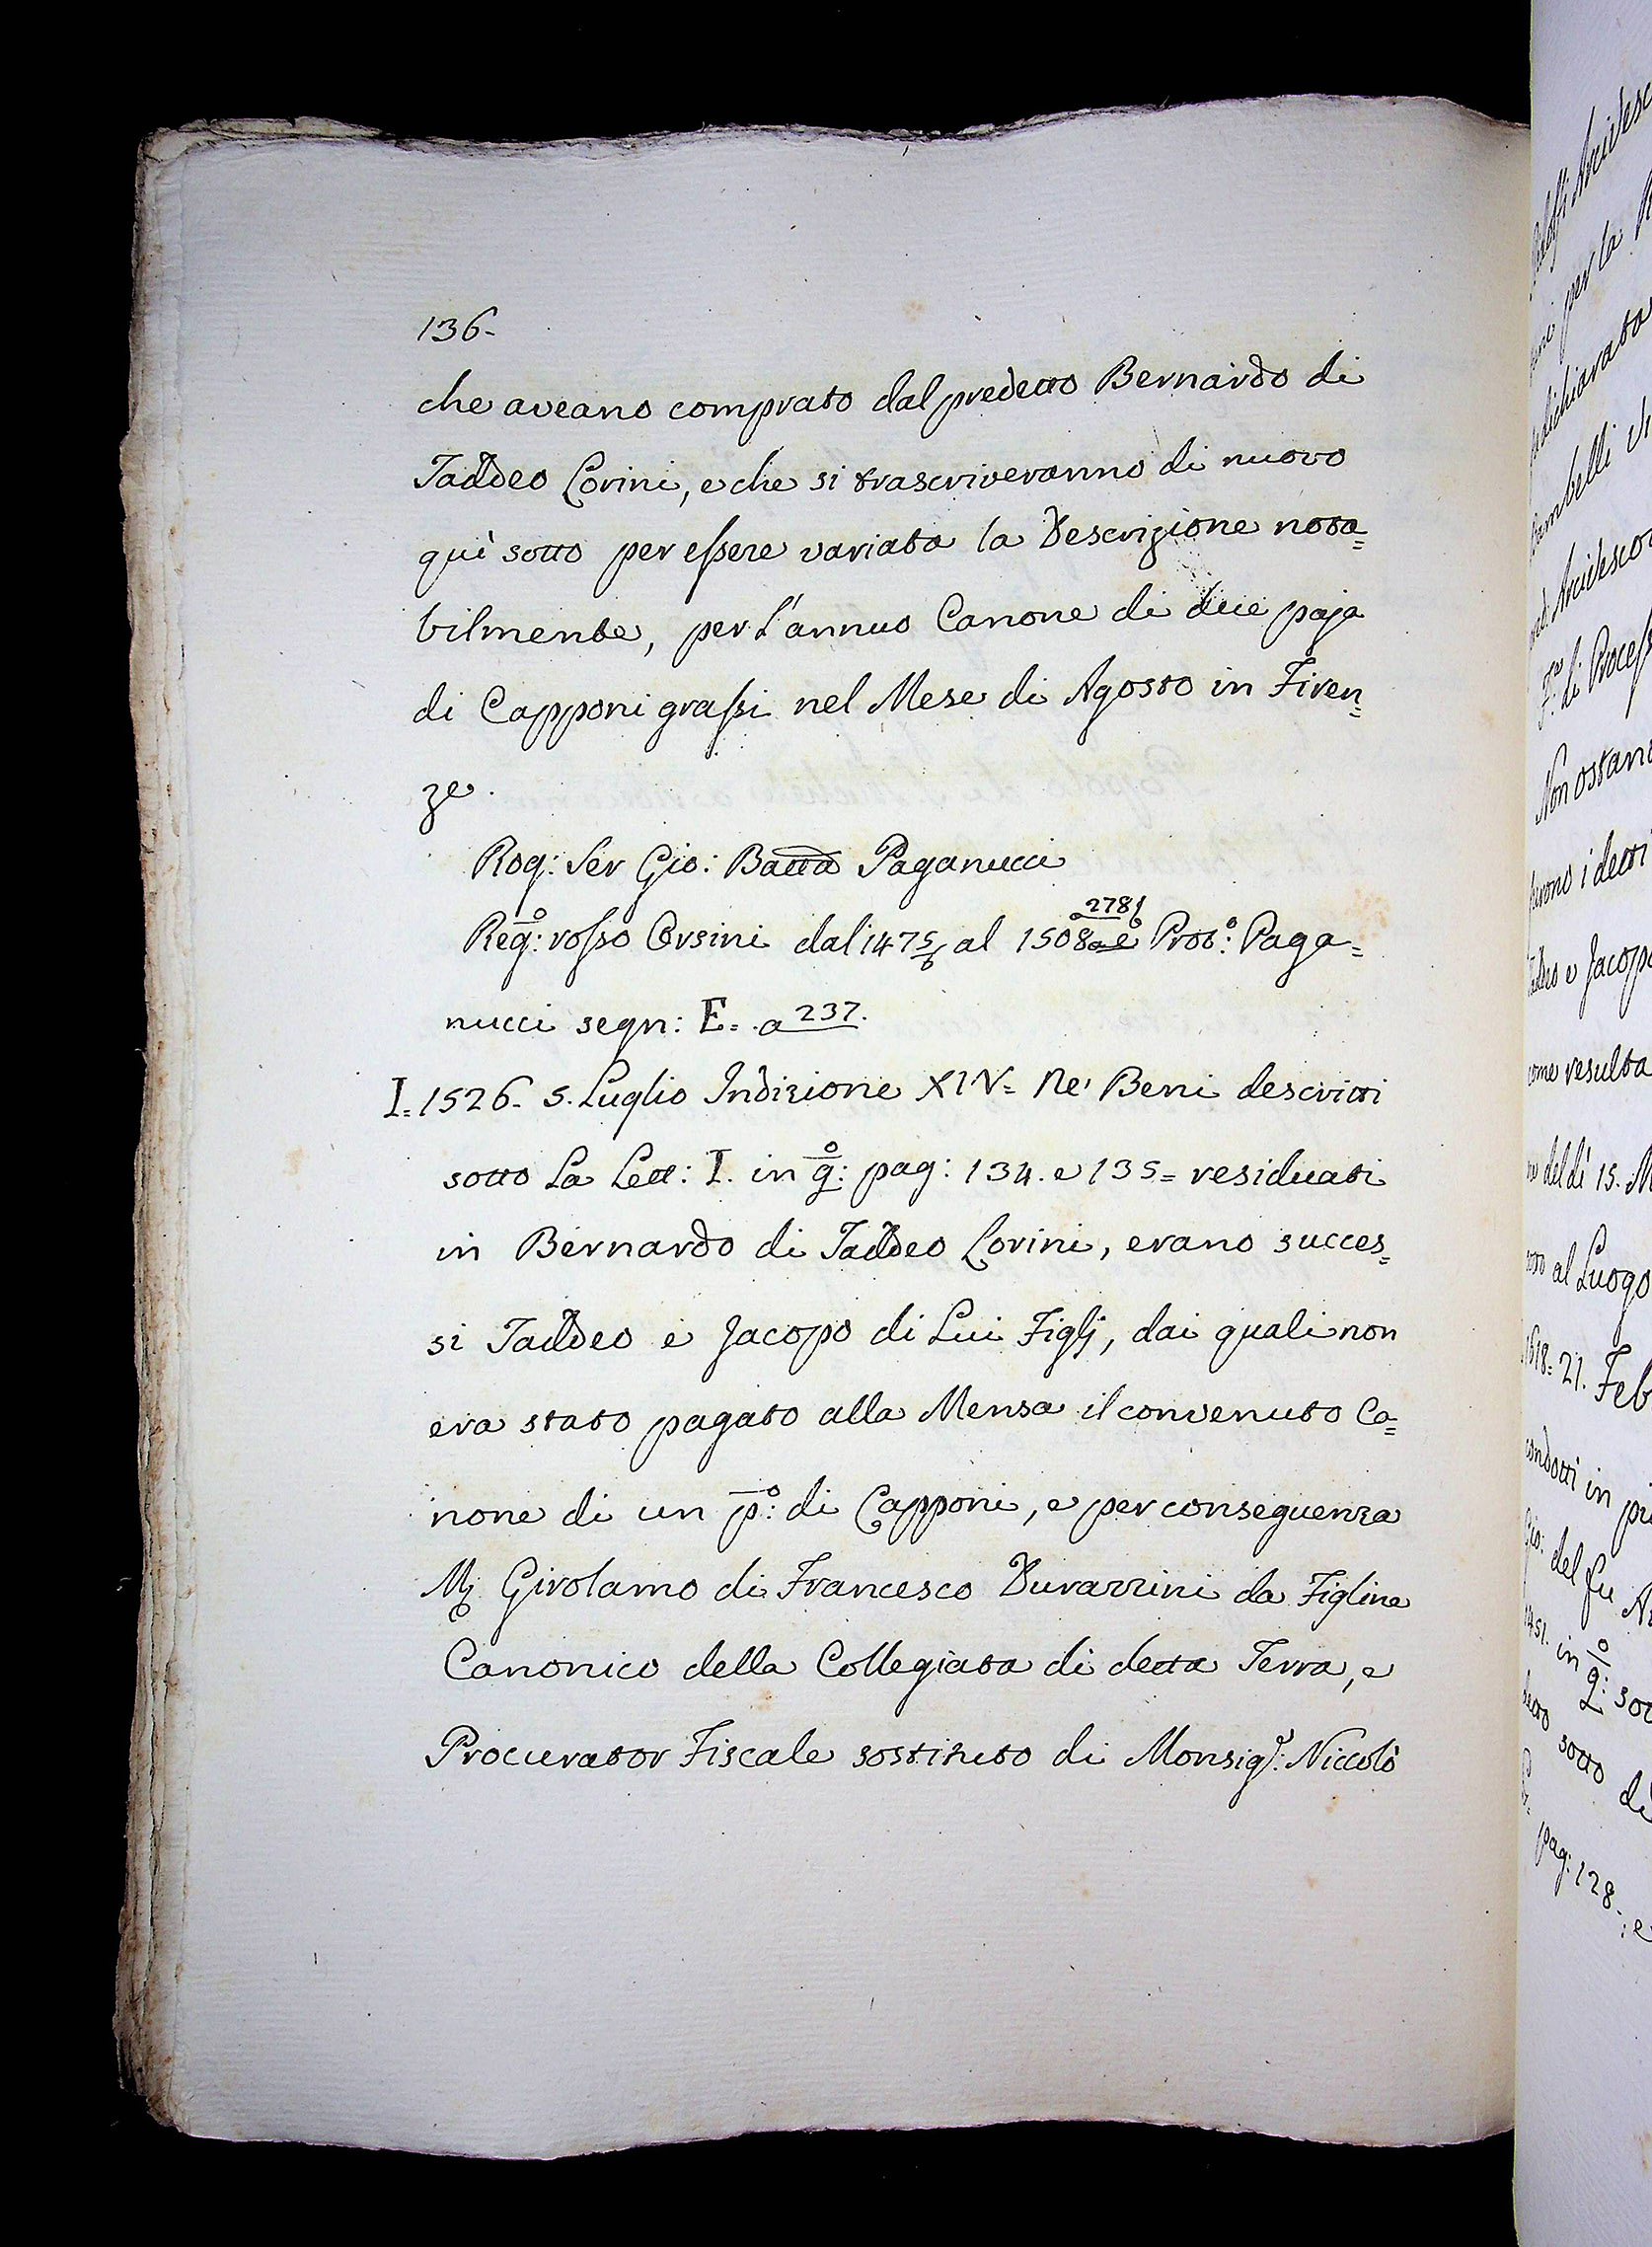 136-
che aveano comprato dal predetto Bernardo di
Taddeo Lorini, e che si trascriveranno di nuovo
quì sotto per eſsere variata la Descrizione nota=
bilmente, per l'annuo Canone di due paja
di Capponi graſsi nel Mese di Agosto in Firen=
ze.
Rog: Ser Gio: Batta Paganucci
Regº: roſso Orsini dal 1475/6 al 1508 a 278 e Protº: Paga=
nucci segn: E= a 237.
I= 1526- 5. Luglio Indizione XIV= Ne' Beni descritti
sotto La Lett: I. in qº: pag: 134. e 135= residuati
in Bernardo di Taddeo Lorini, erano succes=
si Taddeo e Jacopo di Lui Figlj, dai quali non
era stato pagato alla Mensa il convenuto Ca=
none di un pº: di Capponi, e per conseguenza
Mẹ Girolamo di Francesco Durazzini da Figline
Canonico della Collegiata di detta Terra, e
Procurator Fiscale sostituto di Monsigʳ: Niccolò
Arcivesc
per la
dichiarato
Arcivescov
di Proceſs
Non ostan
i detti
e Jacopo
come resulta
del dì 15. M
al Luogo
1618= 21. Feb
condotti in
Gio: del fu
1451. in qº:
sotto
pag: 128